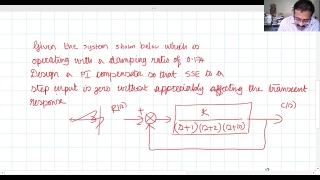 Given the system shown below which is
operating with a damping ratio of 0.174
Design a PI compensator so that SSE to a
step input is zero without appreciably affecting the transient
response
R(s) + C(s)
-
K
(s+1)(s+2)(s+10)